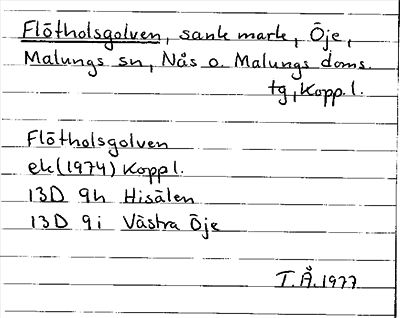 Flötholsgolven, sank mark, Öje,
Malungs sn, Nås o. Malungs doms.
tg, Kopp.l.
Flötholsgolven
ek(1974) Koppl.
13D 9h Hisälen
13D 9i Västra Öje
T.Å.1977